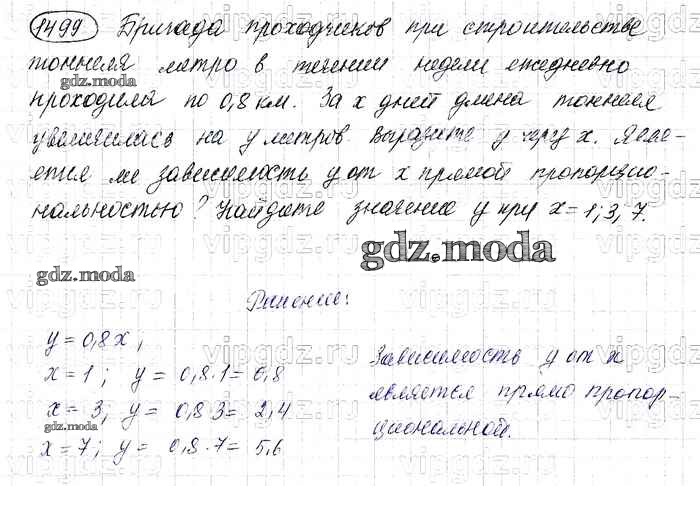 1499 Бригада проходчиков при строительстве
тоннеля метро в течении недели ежедневно
gdz.moda
проходила по 0,8 км. За x дней длина тоннеля
увеличилась на y метров. Выразите y через x. Явля-
ется ли зависимость y от x прямой пропорцио-
нальностью? Найдите значение y при x = 1; 3, 7.
gdz.moda
gdz.moda
Решение:
y = 0,8x;
x = 1; y = 0,8·1 = 0,8
x = 3; y = 0,8·3 = 2,4
gdz.moda
x = 7; y = 0,8·7 = 5,6
Зависимость y от x
является прямо пропор-
циональной.
vipgdz.ru